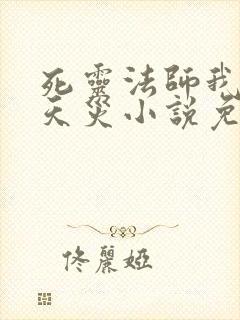 死靈法師我
天災小說免
佟麗婭